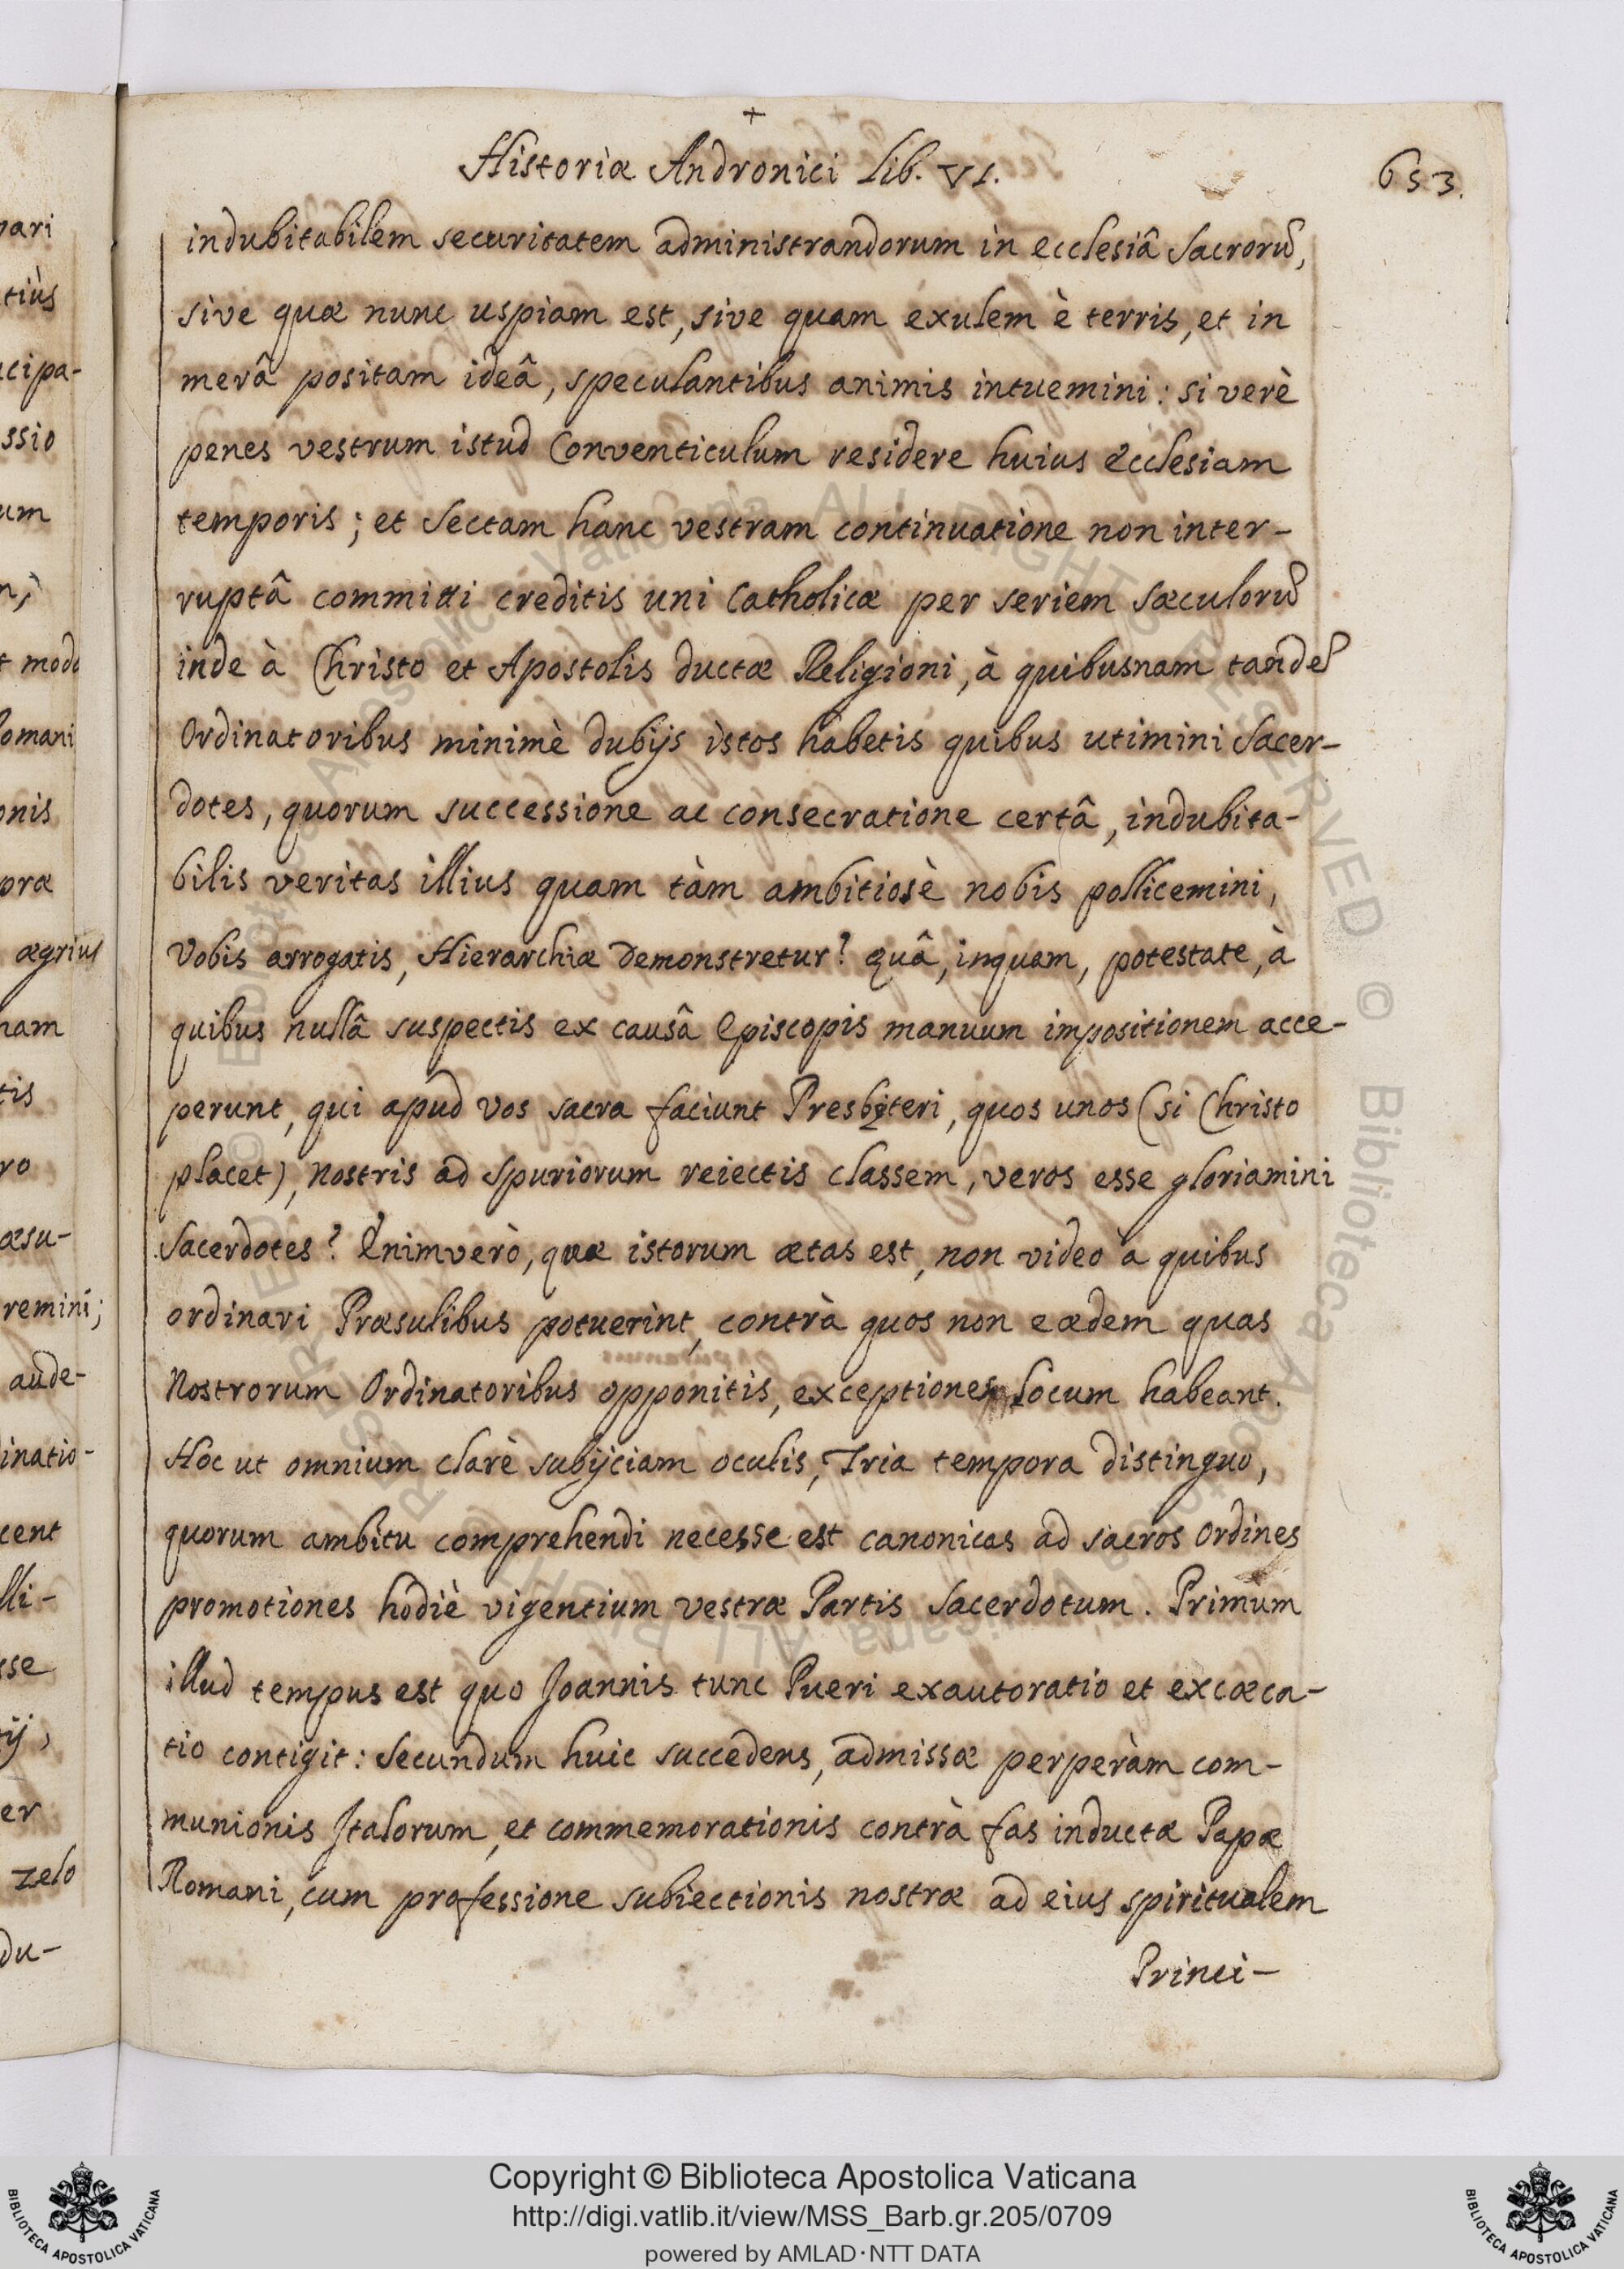 +
Historiæ Andronici Lib. VI.
653.
indubitabilem securitatem administrandorum in ecclesiâ Sacrorū,
sive quæ nunc uspiam est, sive quam exulem è terris, et in
merâ positam ideâ, speculantibus animis intuemini: si verè
penes vestrum istud Conventiculum residere huius Ecclesiam
temporis; et Sectam hanc vestram continuatione non inter-
ruptâ committi creditis uni Catholicæ per seriem sæculorū
inde à Christo et Apostolis ductæ Religioni, à quibusnam tandē
Ordinatoribus minimè dubijs istos habetis quibus utimini Sacer-
dotes, quorum successione ac consecratione certâ, indubita-
bilis veritas illius quam tàm ambitiosè nobis pollicemini,
Vobis arrogatis, Hierarchiæ demonstretur? quâ, inquam, potestate, à
quibus nullâ suspectis ex causâ Episcopis manuum impositionem acce-
perunt, qui apud vos sacra faciunt Presbyteri, quos unos (si Christo
placet), nostris ad spuriorum reiectis classem, veros esse gloriamini
Sacerdotes? Enimverò, quæ istorum ætas est, non video a quibus
ordinari Præsulibus potuerint, contrà quos non eædem quas
Nostrorum Ordinatoribus opponitis, exceptiones locum habeant.
Hoc ut omnium clarè subijciam oculis, Tria tempora distinguo,
quorum ambitu comprehendi necesse est canonicas ad sacros Ordines
promotiones hodiè vigentium vestræ Partis Sacerdotum. Primum
illud tempus est quo Joannis tunc Pueri exautoratio et excæca-
tio contigit: Secundum huic succedens, admissæ perperàm com-
munionis Italorum, et commemorationis contrà fas inductæ Papæ
Romani, cum professione subiectionis nostræ ad eius spiritualem
Princi-
pari
tiùs
ncipa-
ssio
um
n,
t modo
Romani
onis
oræ
ægrius
nam
tis
ro
æsu-
remini;
aude-
inatio-
cent
lli-
sse
ij,
er
zelo
du-
Copyright © Biblioteca Apostolica Vaticana
http://digi.vatlib.it/view/MSS_Barb.gr.205/0709
powered by AMLAD·NTT DATA
BIBLIOTECA APOSTOLICA VATICANA
BIBLIOTECA APOSTOLICA VATICANA
© Biblioteca Apostolica Vaticana ALL RIGHTS RESERVED © Biblioteca Apostolica Vaticana ALL RIGHTS RESERVED